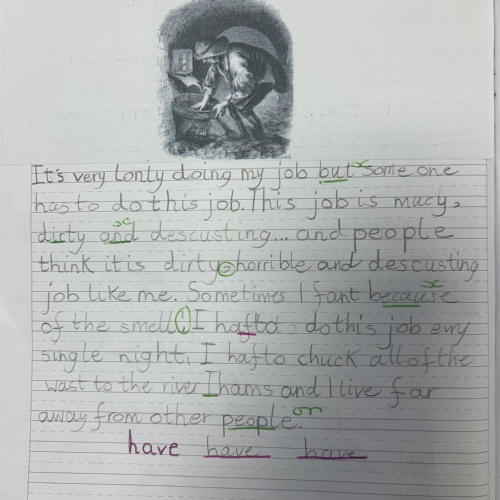 It's very lonly doing my job but some one
has to do this job. This job is mucy,
dirty and descusting... and people
think it is dirty, horrible and descusting
job like me. Sometimes I fant because
of the smell! I hafto do this job evry
single night, I hafto chuck all of the
wast to the river Thams and I live far
away from other people. or
have have have